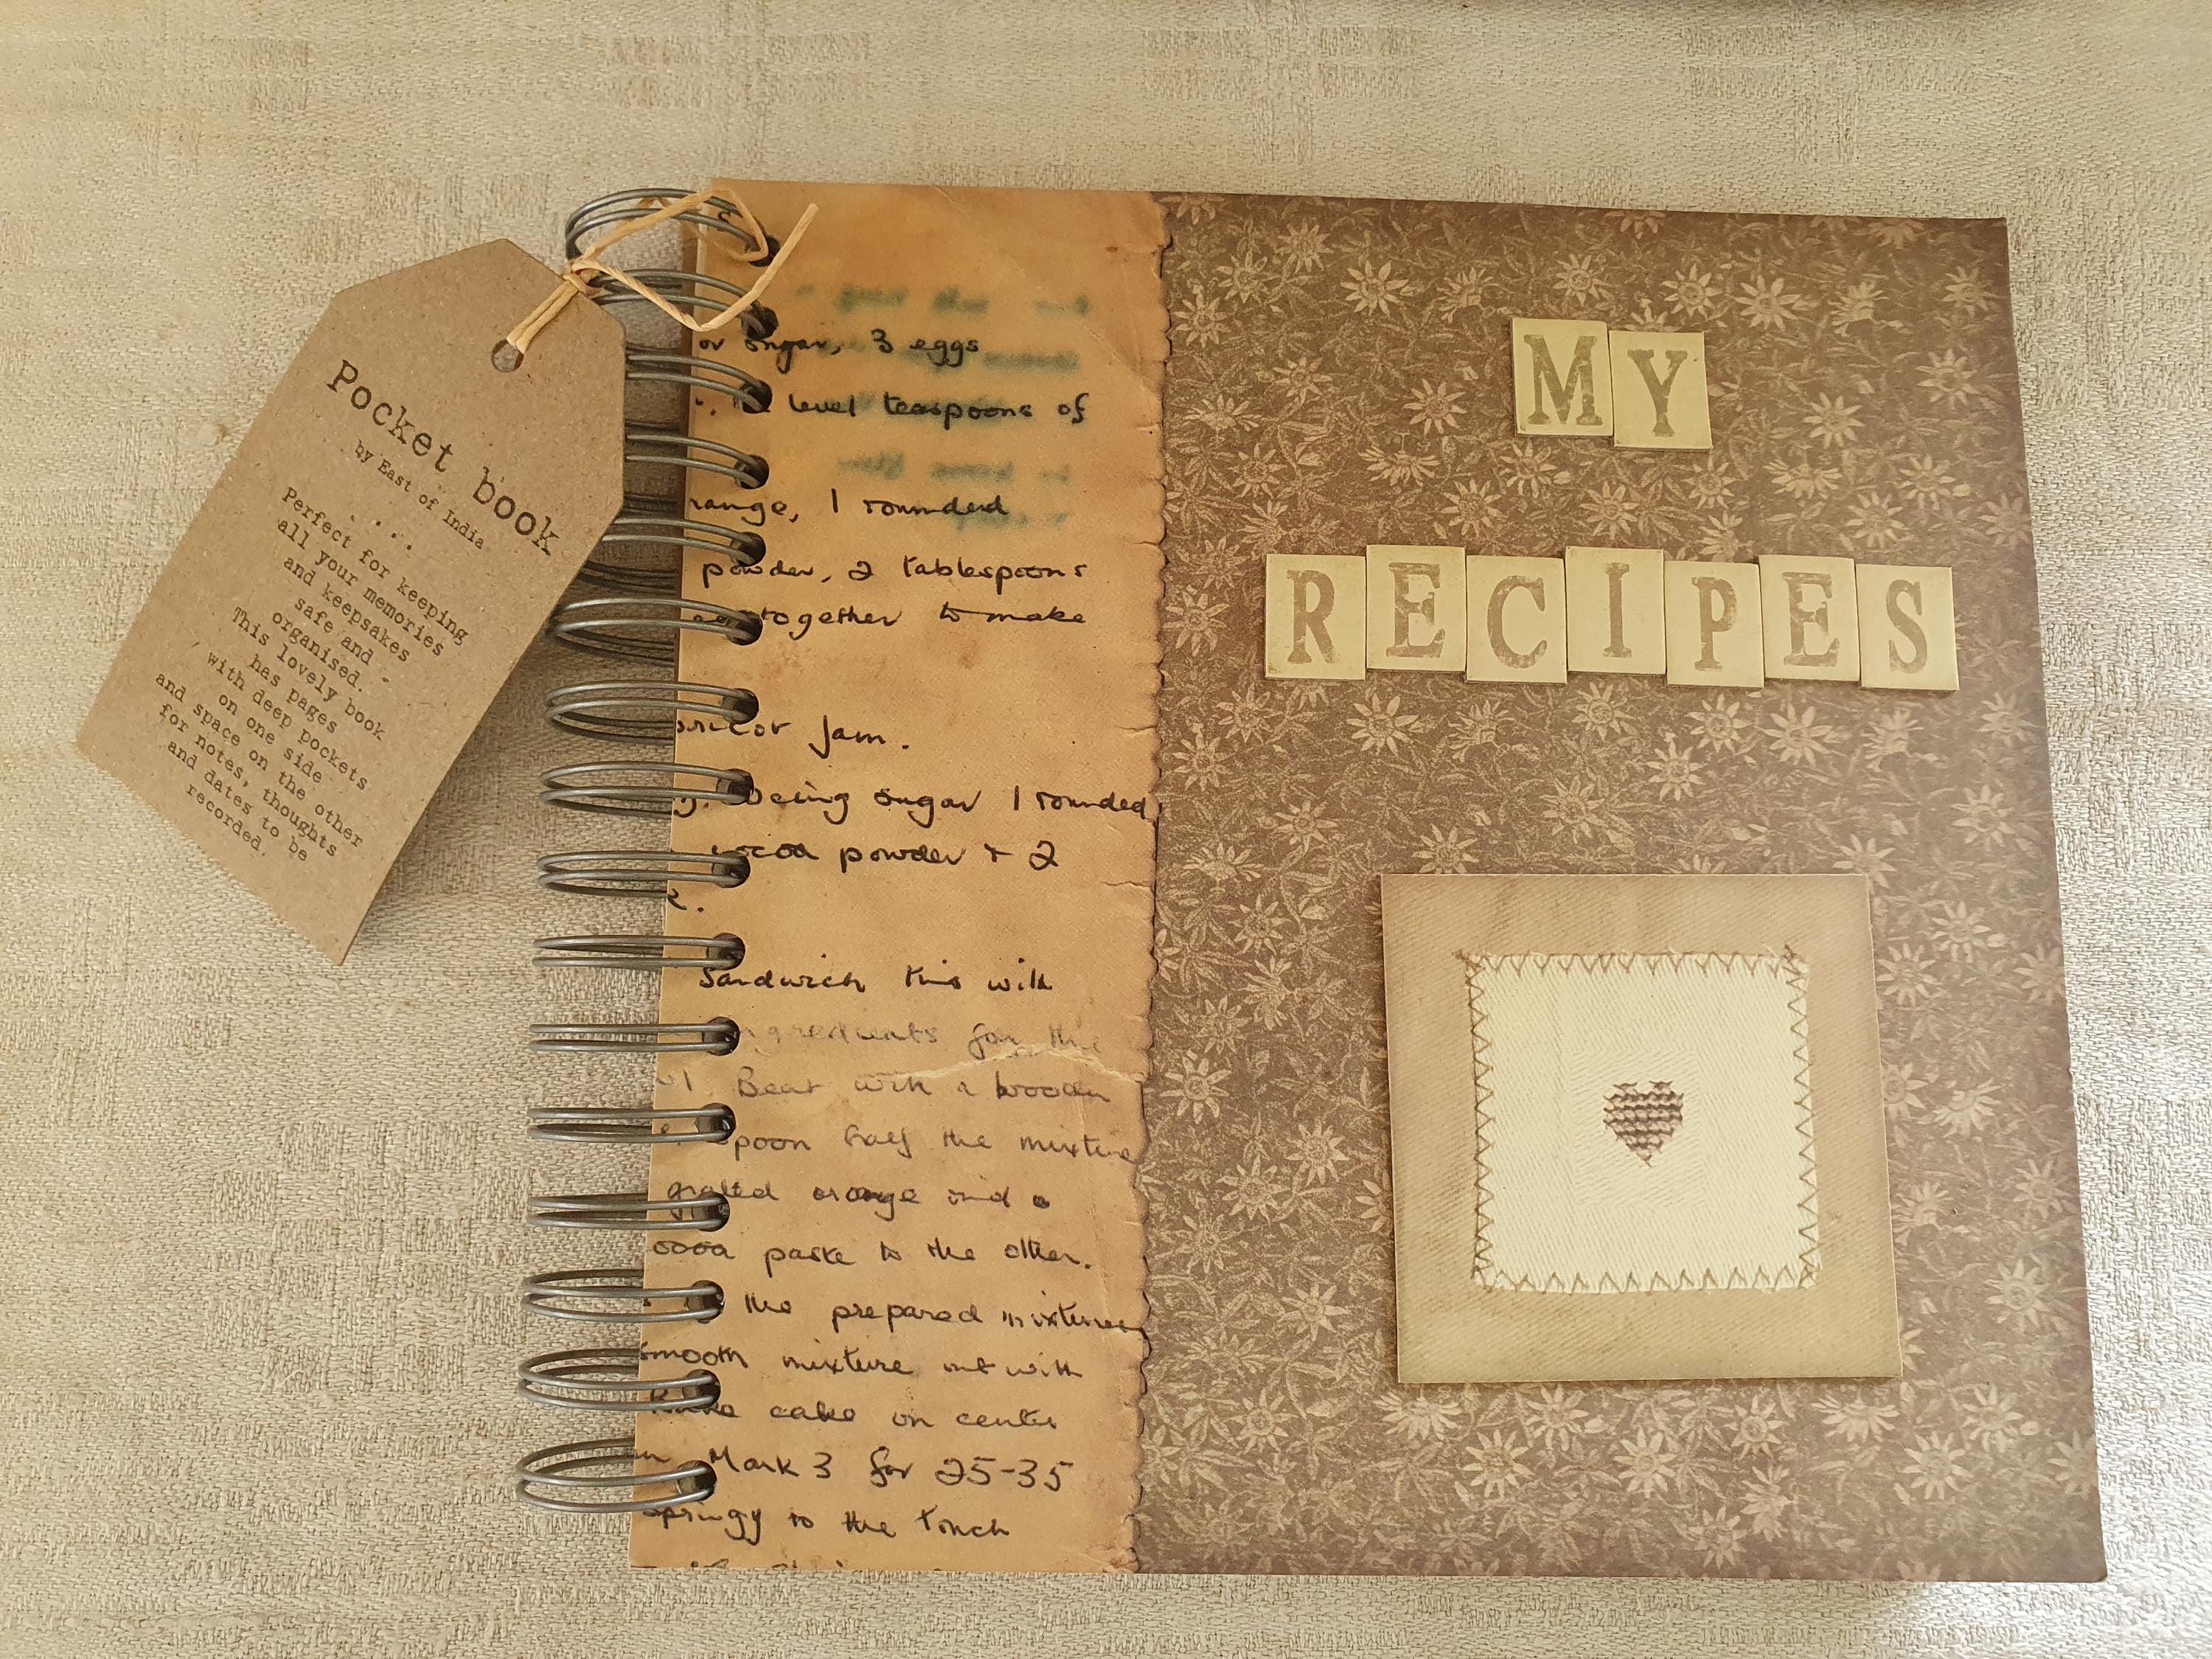 Pocket book
by East of India
....
Perfect for keeping
all your memories
and keepsakes
safe and
organised.
This lovely book
has pages
with deep pockets
on one side
and space on the other
for notes, thoughts
and dates to be
recorded.
or sugar, 3 eggs
level teaspoons of
range, 1 rounded
powder, 2 tablespoons
together to make
ricot jam.
cing sugar 1 rounded
cocoa powder + 2
Sandwich this with
ngredients for the
Beat with a wooden
poon half the mixture
grated orange and a
ocoa paste to the other.
the prepared mixtures
Smooth mixture out with
cake on center
Mark 3 for 25-35
springy to the touch
MY
RECIPES